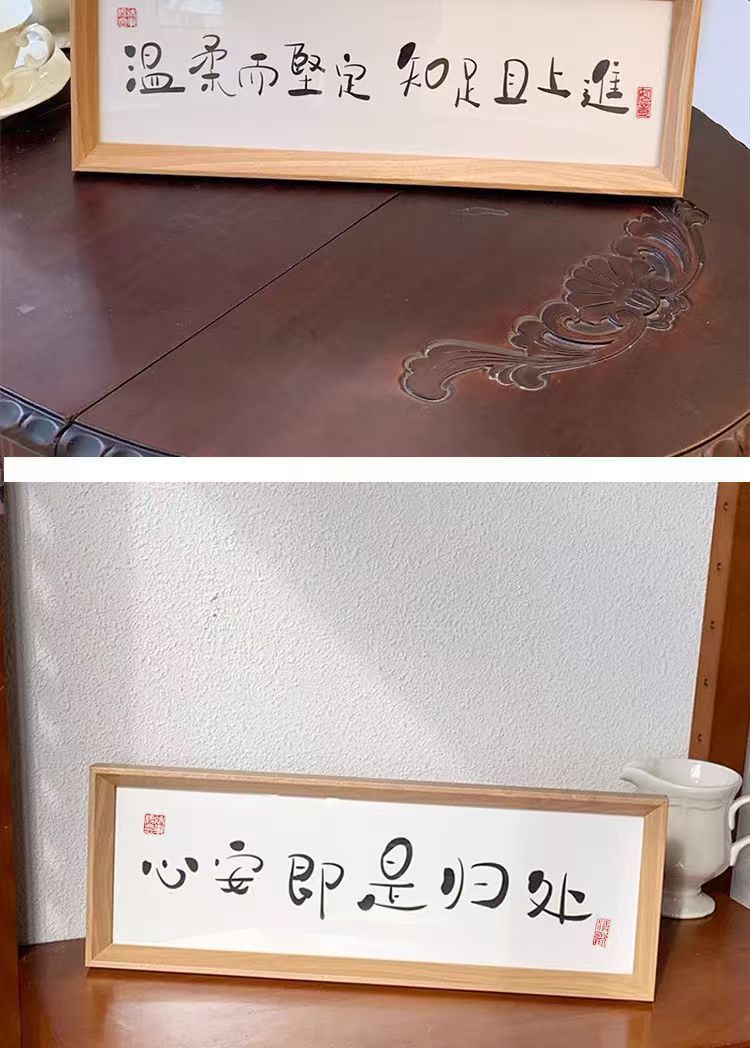 温柔而堅定 知足且上進
心安即是归处